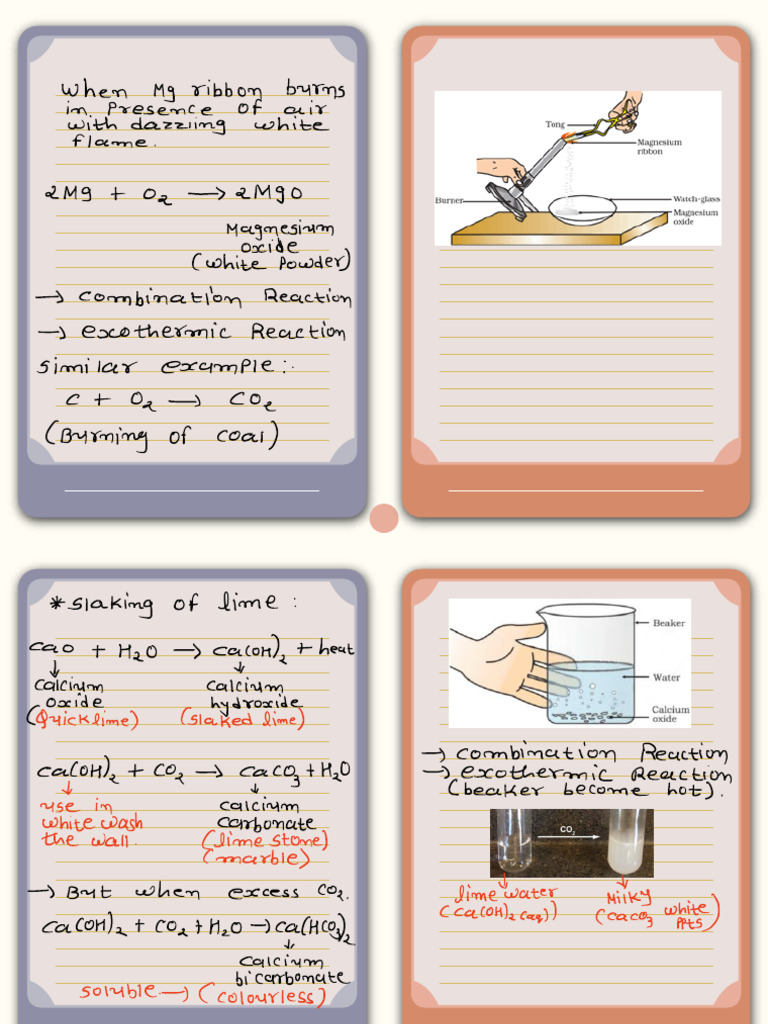 When Mg ribbon burns
in Presence of air
with dazzling white
flame.
2Mg + O₂ ⟶ 2MgO
Magnesium
oxide
(white Powder)
→ combination Reaction
→ exothermic Reaction
similar example:-
C + O₂ ⟶ CO₂
(Burning of coal)
Tong
Magnesium
ribbon
Burner
Watch-glass
Magnesium
oxide
* Slaking of lime :
CaO + H₂O ⟶ Ca(OH)₂ + heat
↓ ↓
calcium calcium
oxide hydroxide
(Quicklime) (slaked lime)
Ca(OH)₂ + CO₂ → CaCO₃ + H₂O
↓ ↓
use in calcium
white wash carbonate
the wall. (lime stone)
(marble)
→ But when excess CO₂.
Ca(OH)₂ + CO₂ + H₂O → Ca(HCO₃)₂
↓
calcium
bicarbonate
soluble → (colourless)
Beaker
Water
Calcium
oxide
→ combination Reaction
→ exothermic Reaction
(beaker become hot).
CO₂
lime water Milky
(Ca(OH)₂(aq)) (CaCO₃ white
PPts)